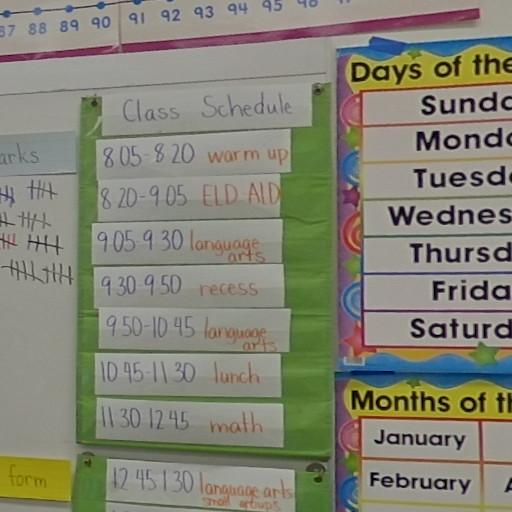 87 88 89 90 91 92 93 94 95
Class Schedule
8 05-8 20 warm up
8 20-9 05 ELD ALD
9 05-9 30 language
arts
9 30-9 50 recess
9 50-10 45 language
arts
10 45-11 30 lunch
11 30 12 45 math
12 45 1 30 language arts
small groups
arks
form
Days of the
Sunda
Mond
Tuesd
Wednes
Thursd
Frida
Saturd
Months of t
January
February